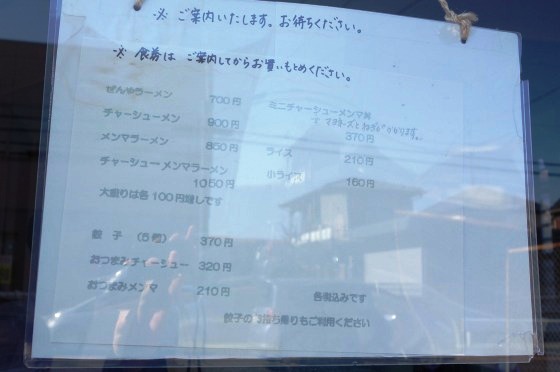 ※ ご案内いたします。お待ちください。
※ 食券は ご案内してからお買いもとめください。
ぜんやラーメン 700円
チャーシューメン 900円
メンマラーメン 850円
チャーシューメンマラーメン
1050円
大盛りは各100円増しです
ミニチャーシューメンマ丼
マヨネーズとねぎがかかります。
370円
ライス 210円
小ライス 160円
餃子 (5個) 370円
おつまみチャーシュー 320円
おつまみメンマ 210円
各税込みです
餃子のお持ち帰りもご利用ください